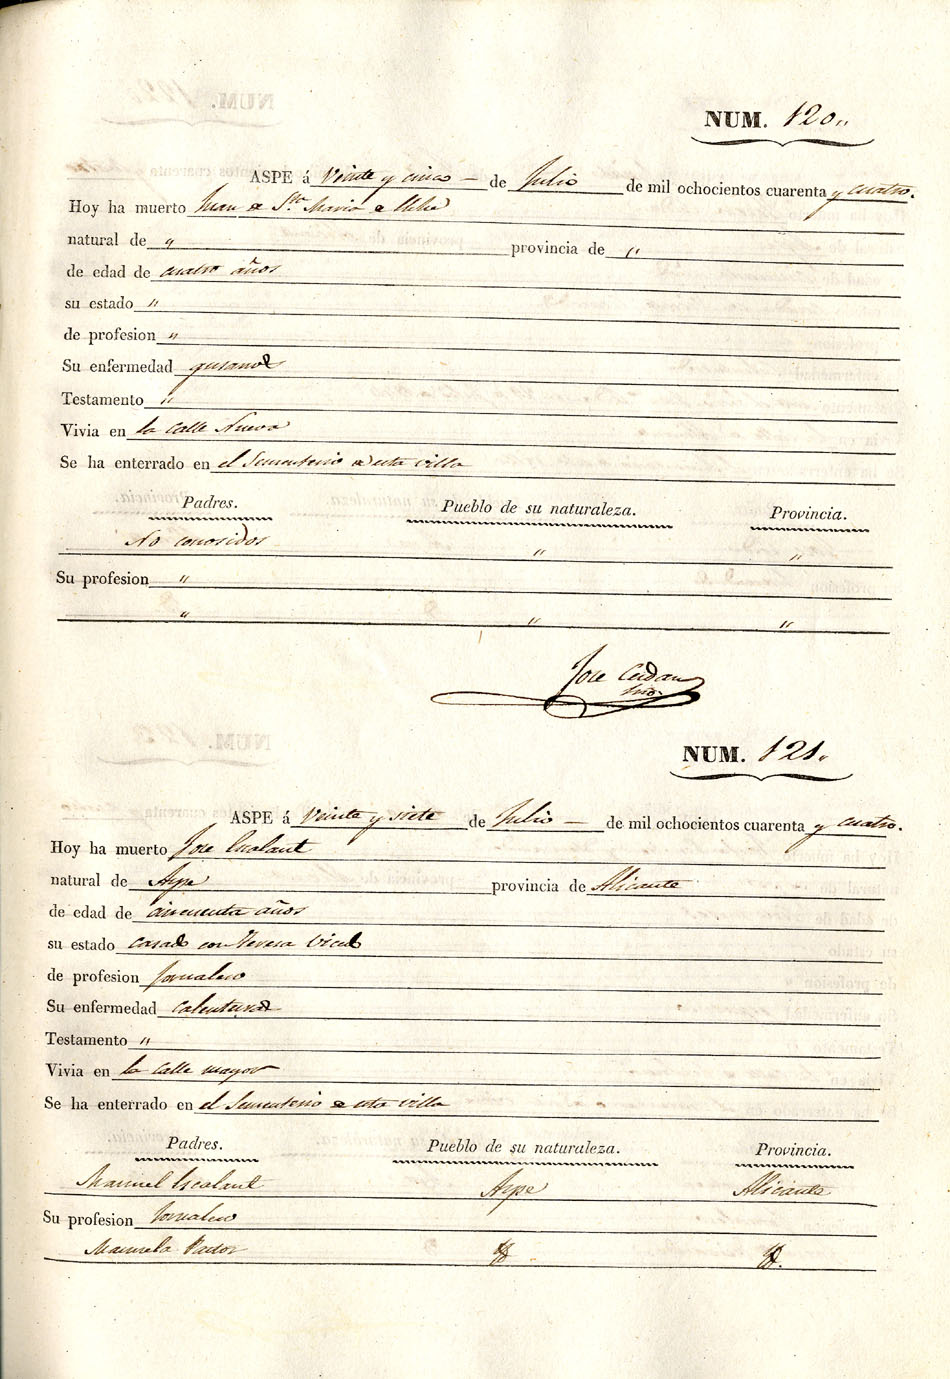 NUM. 120.,
ASPE á Veinte y cinco — de Julio de mil ochocientos cuarenta y cuatro.
Hoy ha muerto Juan de Sta. Maria e
natural de " provincia de "
de edad de cuatro años
su estado "
de profesion "
Su enfermedad gusanos
Testamento "
Vivia en la calle Nueva
Se ha enterrado en el Sementerio de esta villa
Padres. Pueblo de su naturaleza. Provincia.
No conosidos " "
Su profesion "
" " "
Jose Cerdan
NUM. 121.
ASPE á Veinte y siete de Julio — de mil ochocientos cuarenta y cuatro.
Hoy ha muerto Jose Escalant
natural de Aspe provincia de Alicante
de edad de cincuenta años
su estado casado con Teresa Vicedo
de profesion Jornalero
Su enfermedad calenturas
Testamento "
Vivia en la calle mayor
Se ha enterrado en el Sementerio de esta villa
Padres. Pueblo de su naturaleza. Provincia.
Manuel Escalant Aspe Alicante
Su profesion Jornalero
Manuela Pastor